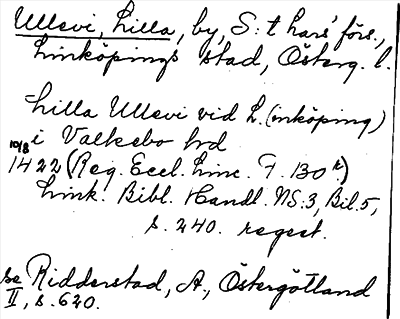 Ullevi, Lilla, by, S:t Lars' förs.,
Linköpings stad, Österg. l.
Lilla Ullevi vid L. (inköping)
i Valkebo hrd
10/8 1422 (Reg. Eccl. Linc. F. 130 r)
Link. Bibl. Handl. NS:3, Bil.5,
s. 240. regest.
se Ridderstad, A., Östergötland
II, s. 620.